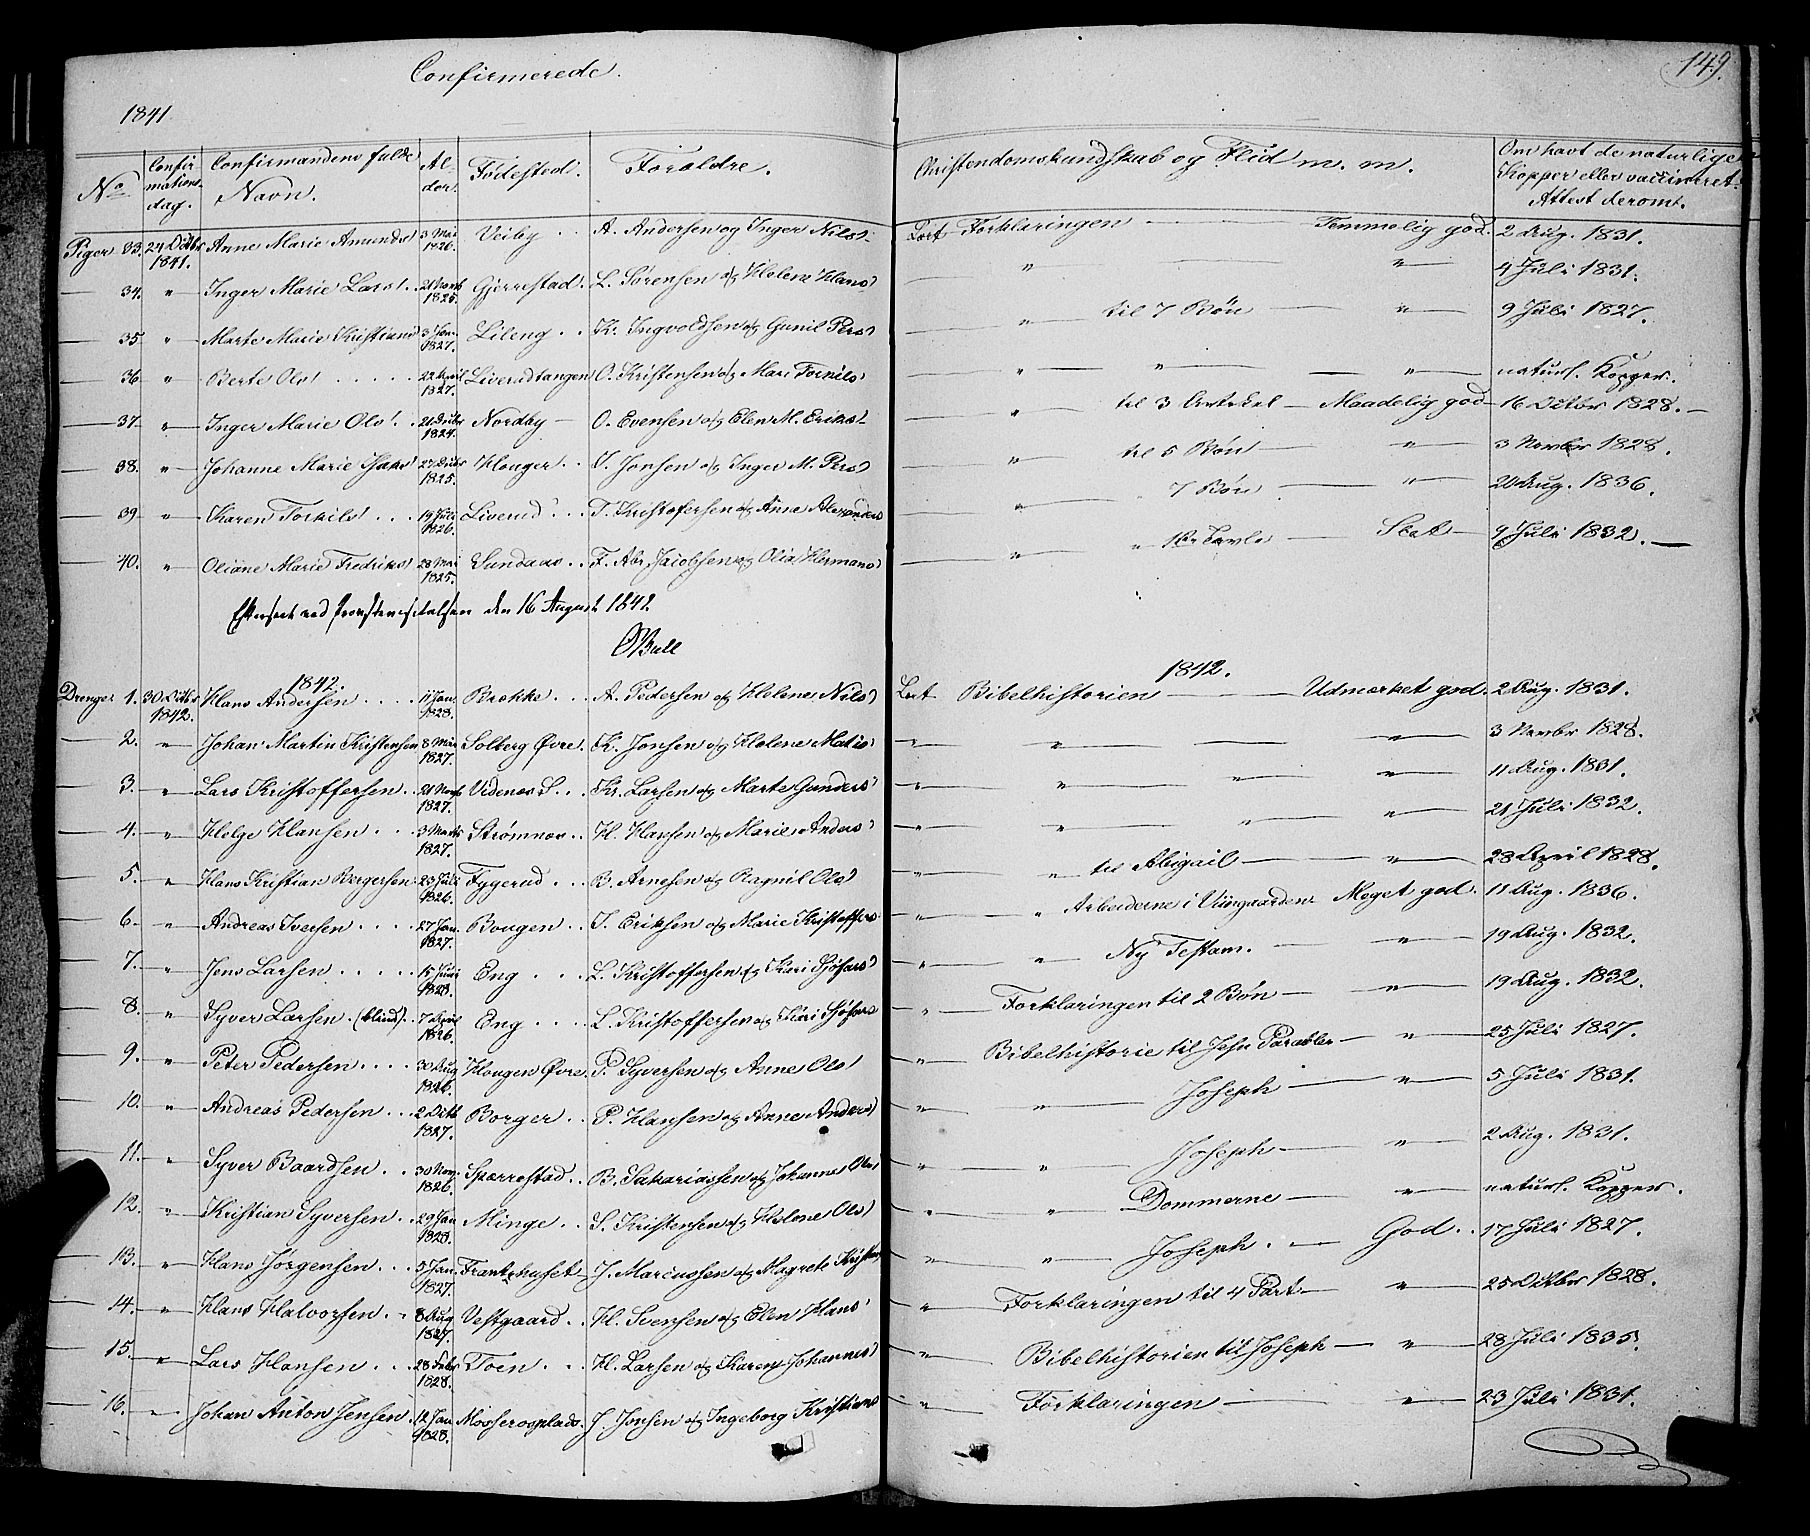 Confirmerede.
149.
1841
No Confirmationsdag. Confirmandens fulde Navn. Alder. Fødested. Forældre. Christendomskundskab og Flid m. m. Om havt de naturlige Kopper eller vaccineret. Attest derom.
Piger 33. 24 Octbr 1841. Anne Marie Amunds 3 Mai 1826. Veiby A. Andersen og Inger Nils Læst Forklaringen Temmelig god. 2 Aug. 1831.
34. " Inger Marie Lars 1825. Gjerrestad. L. Sørensen og Helene Hans " " 4 Juli 1831.
35 " Marte Marie Kristians 3 Jan. 1827. Lileng K. Ingvoldsen og Gunil Pers " til 7 Bøn " 9 Juli 1827.
36 " Berte Ols 22 April 1827. Liverudtangen O. Kristensen og Mari " " " naturl. Kopper.
37 " Inger Marie Ols 1824. Nordby O. Evensen og Elen M. Eriks " til 3 Artikel Maadelig god 16 Octbr 1828.
38. " Johanne Marie 1825. Houger J. Jonsen og Inger M. Pers " til 5 Bøn " 3 Novbr 1828.
39 " Karen Torkils 19 Juli 1826. Liverud T. Kristofersen og Anne Alexanders " 7 Bøn " 20 Aug. 1836.
40. " Oliane Marie Fredriks 28 Mai 1825. Sundaas F. Abr. Jacobsen og Olia Hermans " " Slet 9 Juli 1832.
Efterseet ved Provstevisitatsen den 16 August 1842
Bull
1842. 1842.
Drenge 1. 30 Octbr 1842. Hans Andersen 11 Jan. 1828. Brekke A. Pedersen og Helene Nils Læst Bibelhistorien Udmærket god. 2 Aug. 1831.
2. " Johan Martin Kristensen 8 Mai 1827. Solberg Øvre. K. Jonsen og Helene Matis " " " 3 Novbr 1828.
3. " Lars Kristoffersen 1827. Videnes S. Kr. Larsen og Marte Gunders " " " " 11 Aug. 1831.
4. " Helge Hansen 3 Marts 1827. Strømnes H. Hansen og Marie Anders " " " " 21 Juli 1832.
5. " Hans Kristian Bergersen 23 Juli 1826. Fygerud B. Arnesen og Ragnil Ols " " til Abigail " 28 April 1828.
6. " Andreas Iversen 27 Jan. 1827. Bougen I. Eriksen og Marie Kristoffers " " Arbeiderne i Viingaarden Meget god. 11 Aug. 1836.
7. " Jens Larsen 15 1828. Eng L. Kristoffersen og Kari Sjøfars " " Ny Testam. " 19 Aug. 1832.
8. " Syver Larsen (blind) 7 1826. Eng L. Kristoffersen og Kari Sjøfars " Forklaringen til 2 Bøn " 19 Aug. 1832.
9. " Peter Pedersen 30 Aug 1826. Hougen Øvre. P. Syversen og Anne Ols " Bibelhistorie til Jesu Parabler " 25 Juli 1827.
10. " Andreas Pedersen 2 Octb 1827. Borger P. Hansen og Anne Anders " " Joseph " 5 Juli 1831.
11. " Syver Baardsen 30 Nov. 1826. Spærrestad. B. Sakariassen og Johanne Ols " " Joseph " 2 Aug. 1831.
12. " Kristian Syversen 29 Jan 1828. Minge S. Kristensen og Helene Ols " " Dommerne " naturl. Kopper.
13. " Hans Jørgensen 5 Jan. 1827. Frantshuset J. Marcussen og Magrete " " Joseph. God. 17 Juli 1827.
14. " Hans Halvorsen 8 Aug 1827. Vestgaard H. Svensen og Elen Hans " Forklaringen til 4 Part " 25 Octbr 1828.
15. " Lars Hansen 28 Febr 1828. Toen H. Larsen og Karen Johannes " Bibelhistorien til Joseph " 28 Juli 1835.
16. " Johan Anton Jensen 12 Jan. 1828. Mosserosplads. J. Jonsen og Ingeborg Kristians " Forklaringen " 23 Juli 1831.